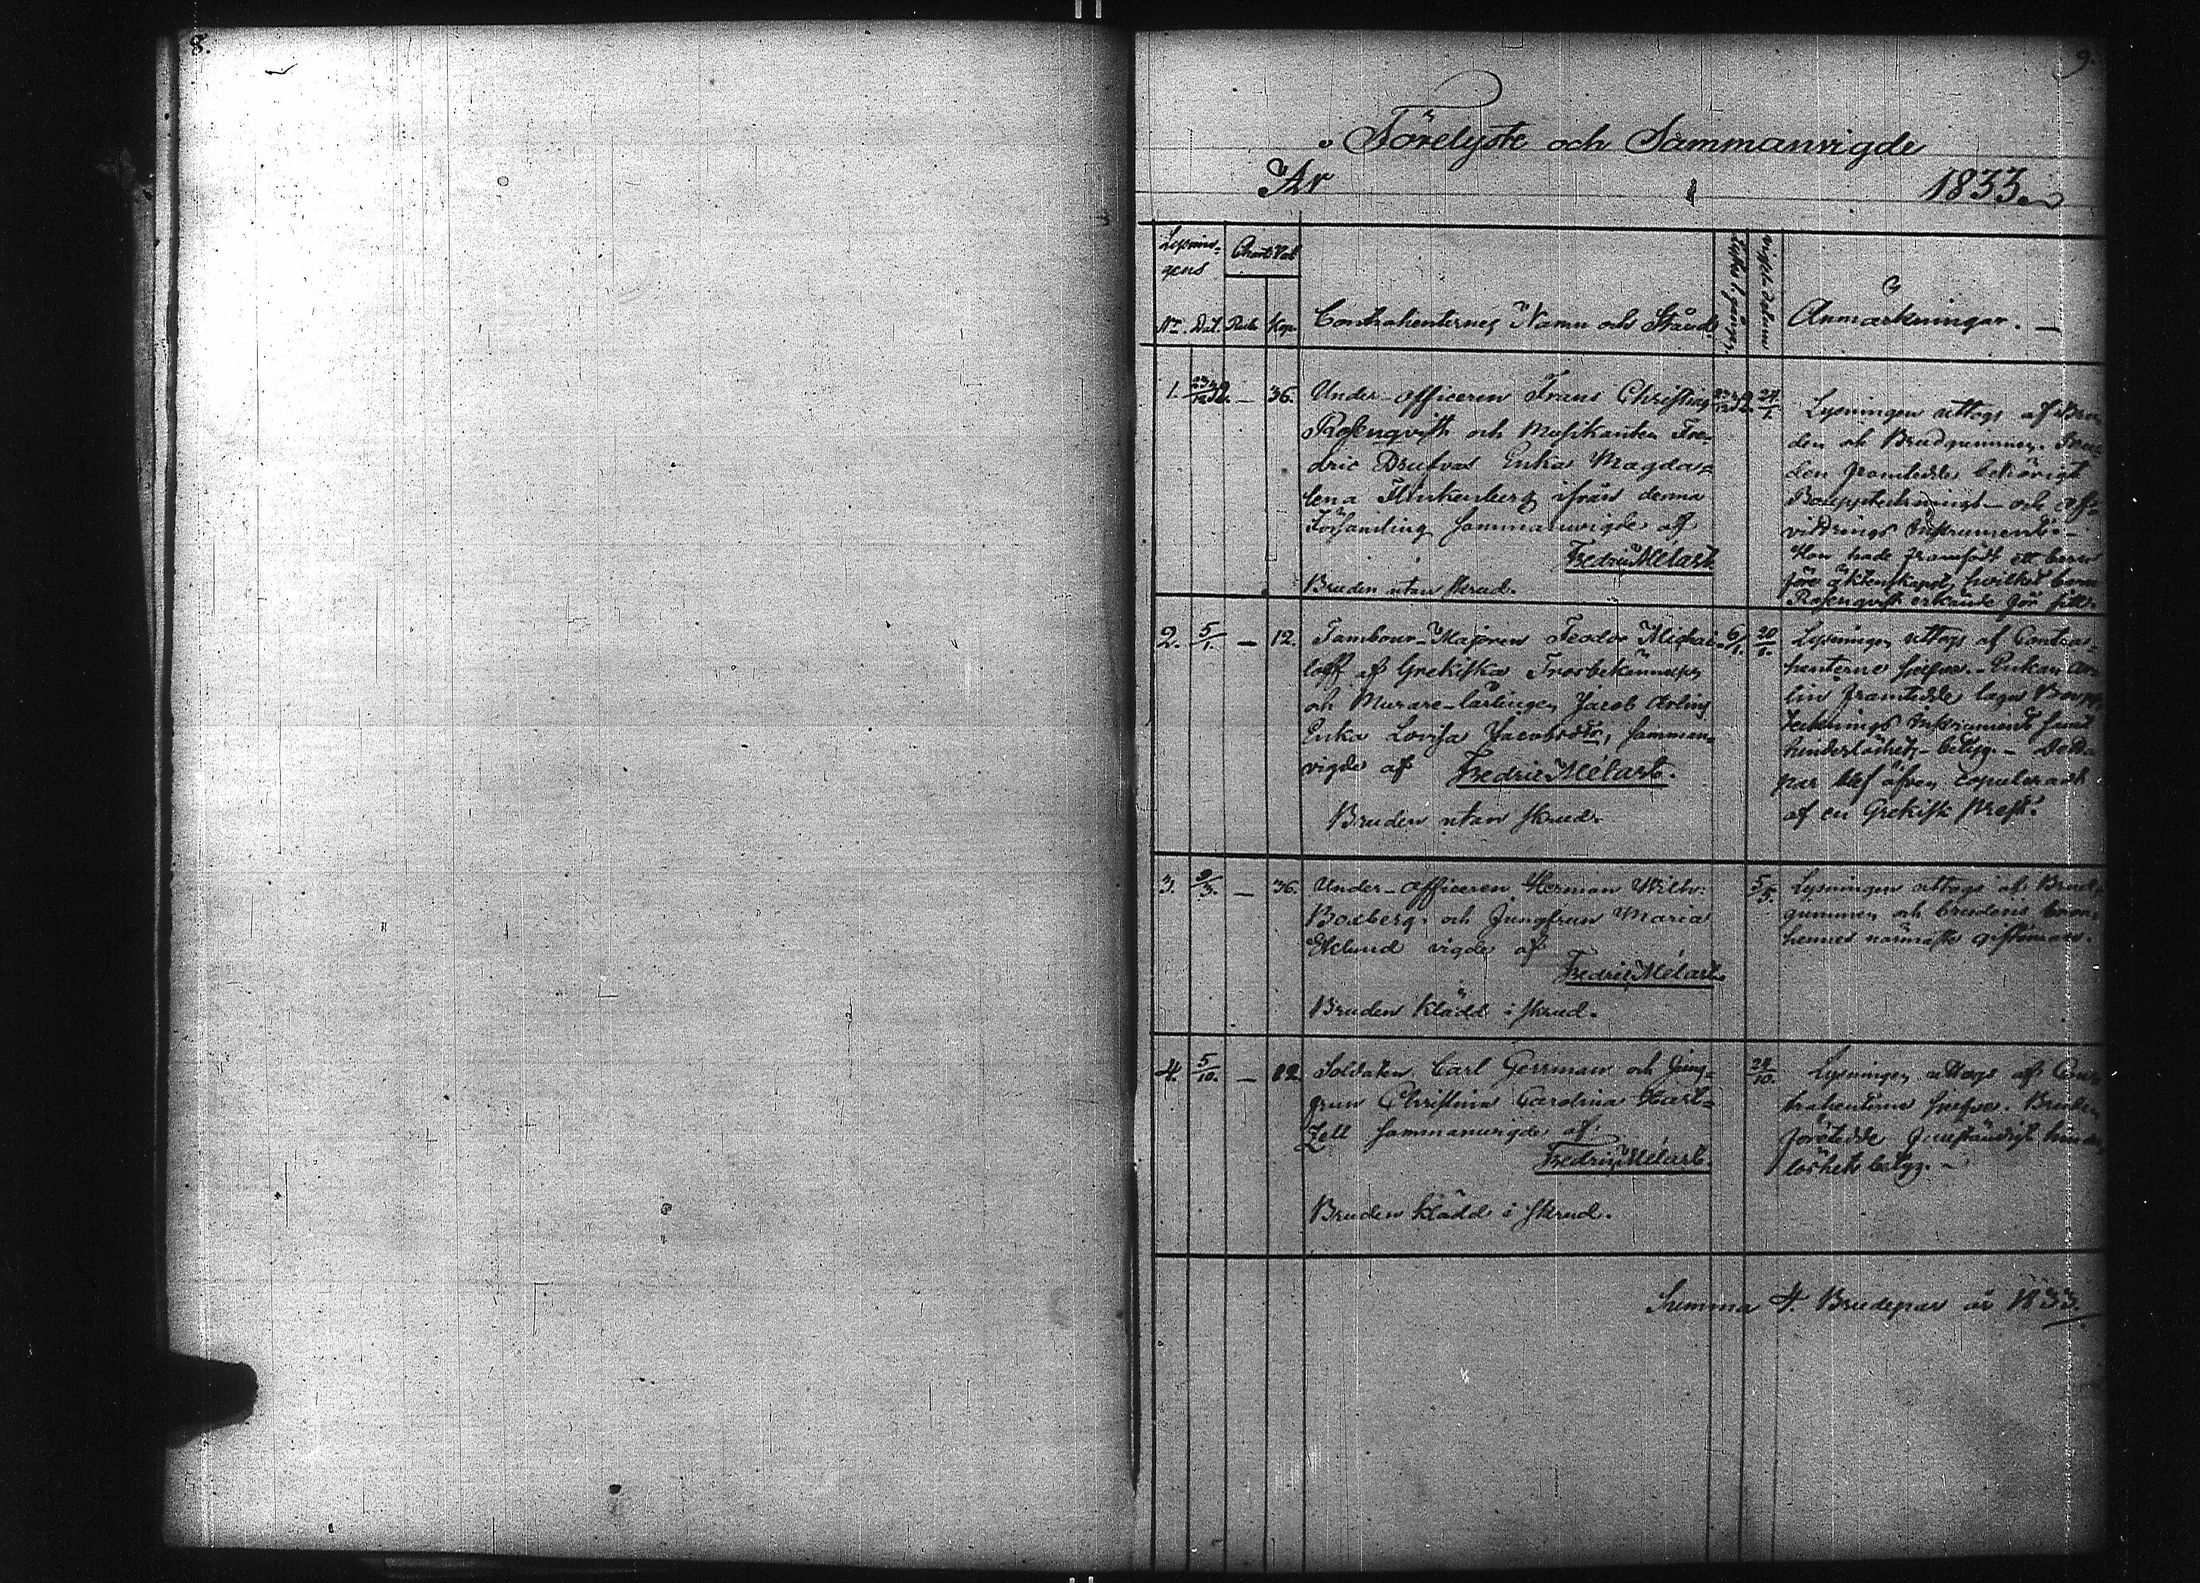 8.
9.
Förelyste och Sammanvigde
År 1833.
Lysnin-
gens
Chart. Val.
No. Dat. Rub. Kop. Contrahenternes Namn och Stånd
Anmärkningar. —
1. 23/12 32. — 36. Under-officeren Frans Christian
Rosenqvist och Musikanten Fre-
dric Drufvas Enka Magda-
lena Flinkenberg ifrån denna
Församling sammanvigde af
Fredric Mélart
Bruden utan skrud.
24/1.
Lysningen uttogs af Bru-
den och Brudgummen.
den framtedde behörigt
Bouppteknings- och Af-
vittrings Instrument. —
Hon hade framfödt ett barn
före äktenskapet, hvilket barn
Rosenqvist erkände för sitt.
2. 5/1. — 12. Tambour-Majoren Feodor Michai-
loff af Grekiska Trosbekännelsen
och Murare-lärlingen Jacob Arlins
Enka Lovisa Jacobsdtr, samman-
vigde af Fredric Mélart.
Bruden utan skrud.
6/1. 20/1.
Lysningen uttogs af Contra-
henterne sjelfva. Enkan Ar-
lin framtedde laga Boupp-
teknings Instrument samt
hinderlöshets-betyg. — Detta
par blef äfven copuleradt
af en Grekisk Prest.
3. 9/3. — 36. Under-officeren Herman Wilh:
Boxberg och Jungfrun Maria
Eklund vigde af
Fredric Mélart.
Bruden klädd i skrud.
5/5.
Lysningen uttogs af Brud-
gummen och brudens
hennes närmaste giftoman.
4. 5/10. — 12 Soldaten Carl Gerrman och Jung-
frun Christina Carolina Hart-
zell sammanvigde af
Fredric Mélart.
Bruden klädd i skrud.
22/10.
Lysningen uttogs af Con-
trahenterne sjelfva. Bruden
företedde hinder-
löshets betyg. —
Summa 4. Brudepar år 1833.